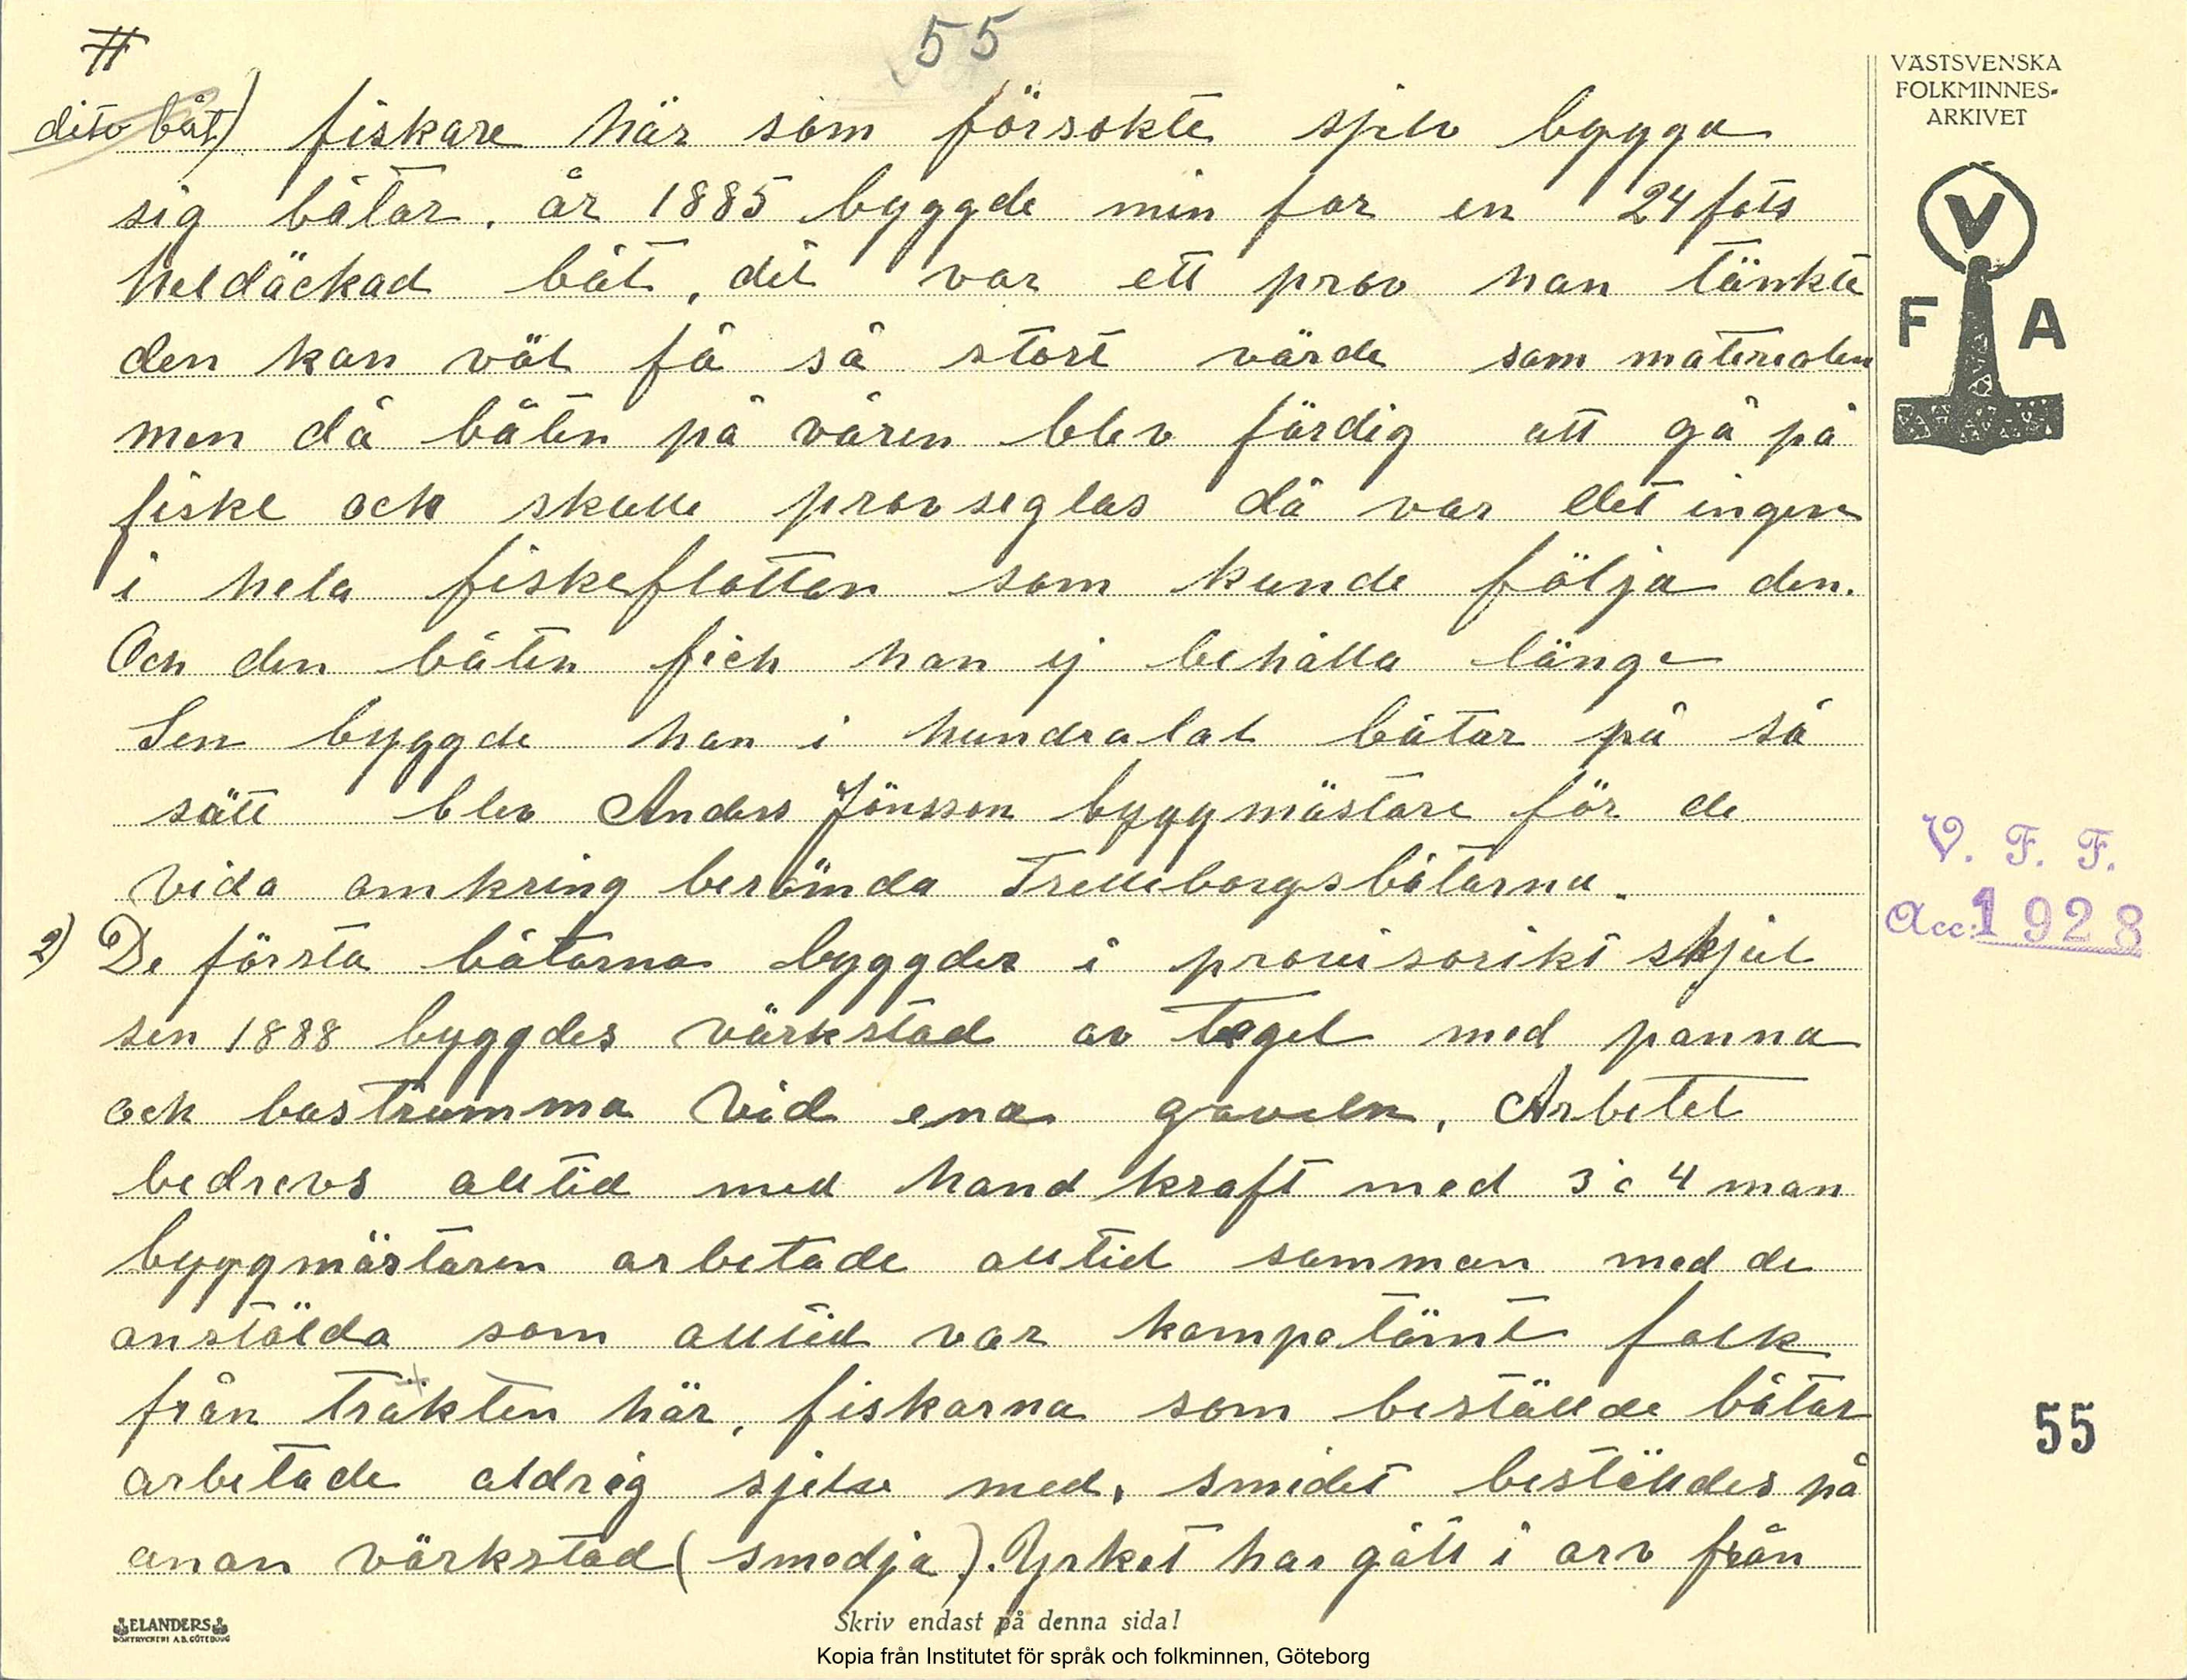 #
55
dito båt) fiskare här som försökte sjelv bygga
sig båtar. år 1885 byggde min far en 24 fots
heldäckad båt, det var ett prov han tänkte
den kan väl få så stort värde som materialen
men då båten på våren blev färdig att gå på
fiske och skulle provseglas då var det ingen
i hela fiskeflottan som kunde följa den.
Och den båten fich han ej behålla länge
Sen byggde han i hundratal båtar på så
sätt blev Anders Jönsson byggmästare för de
vida omkring berömda Trelleborgsbåtarna.
2) De första båtarna byggdes i provisorikt skjul
sen 1888 byggdes värkstad av tegel med panna
och bastrumma vid ena gaveln, Arbetet
bedrevs alltid med handkraft med 3 à 4 man
byggmästaren arbetade alltid samman med de
anstälda som alltid var kompetämt folk
från trakten här, fiskarna som beställde båtar
arbetade aldrig sjelve med, smidet beställdes på
anan värkstad (smedja). Yrket har gått i arv från
VÄSTSVENSKA
FOLKMINNES-
ARKIVET
V
F A
V. F. F.
Acc: 1928
55
ELANDERS
BOKTRYCKERI A.B. GÖTEBORG
Skriv endast på denna sida!
Kopia från Institutet för språk och folkminnen, Göteborg